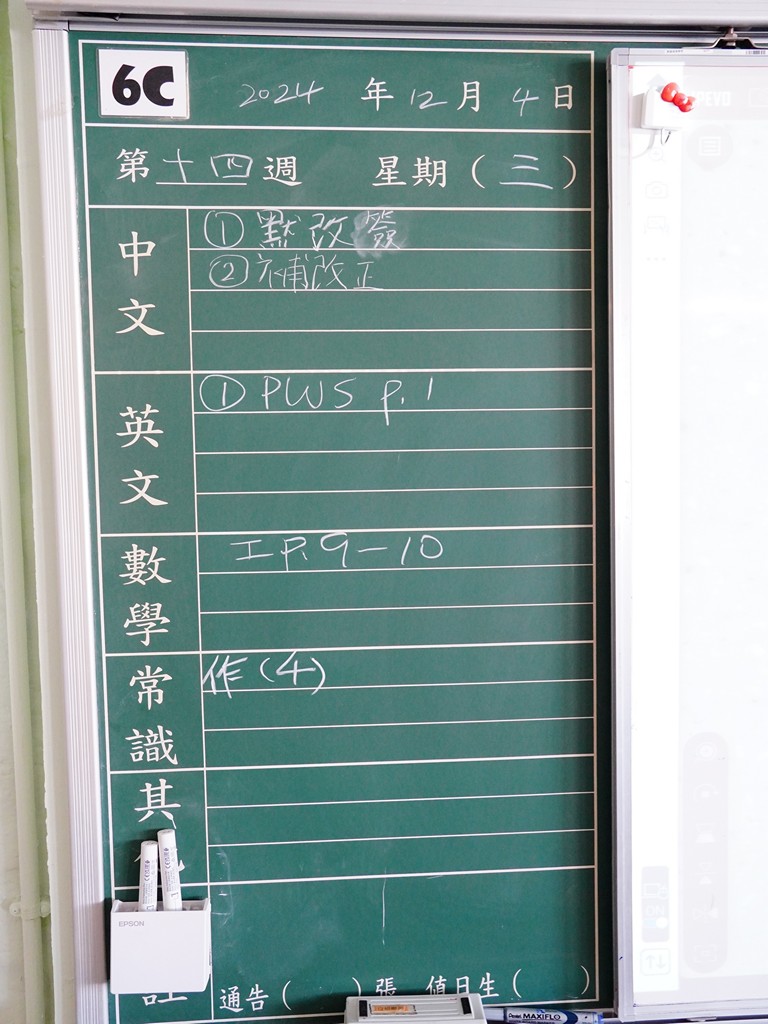 6C 2024 年 12 月 4 日
第 十四 週 星期 ( 三 )
中文
① 默改簽
② 補改正
英文
① PWS p.1
數學
工 P.9-10
常識
作 (4)
其
EPSON
註
通告 ( ) 張 值日生 ( )
Pentel MAXIFLO